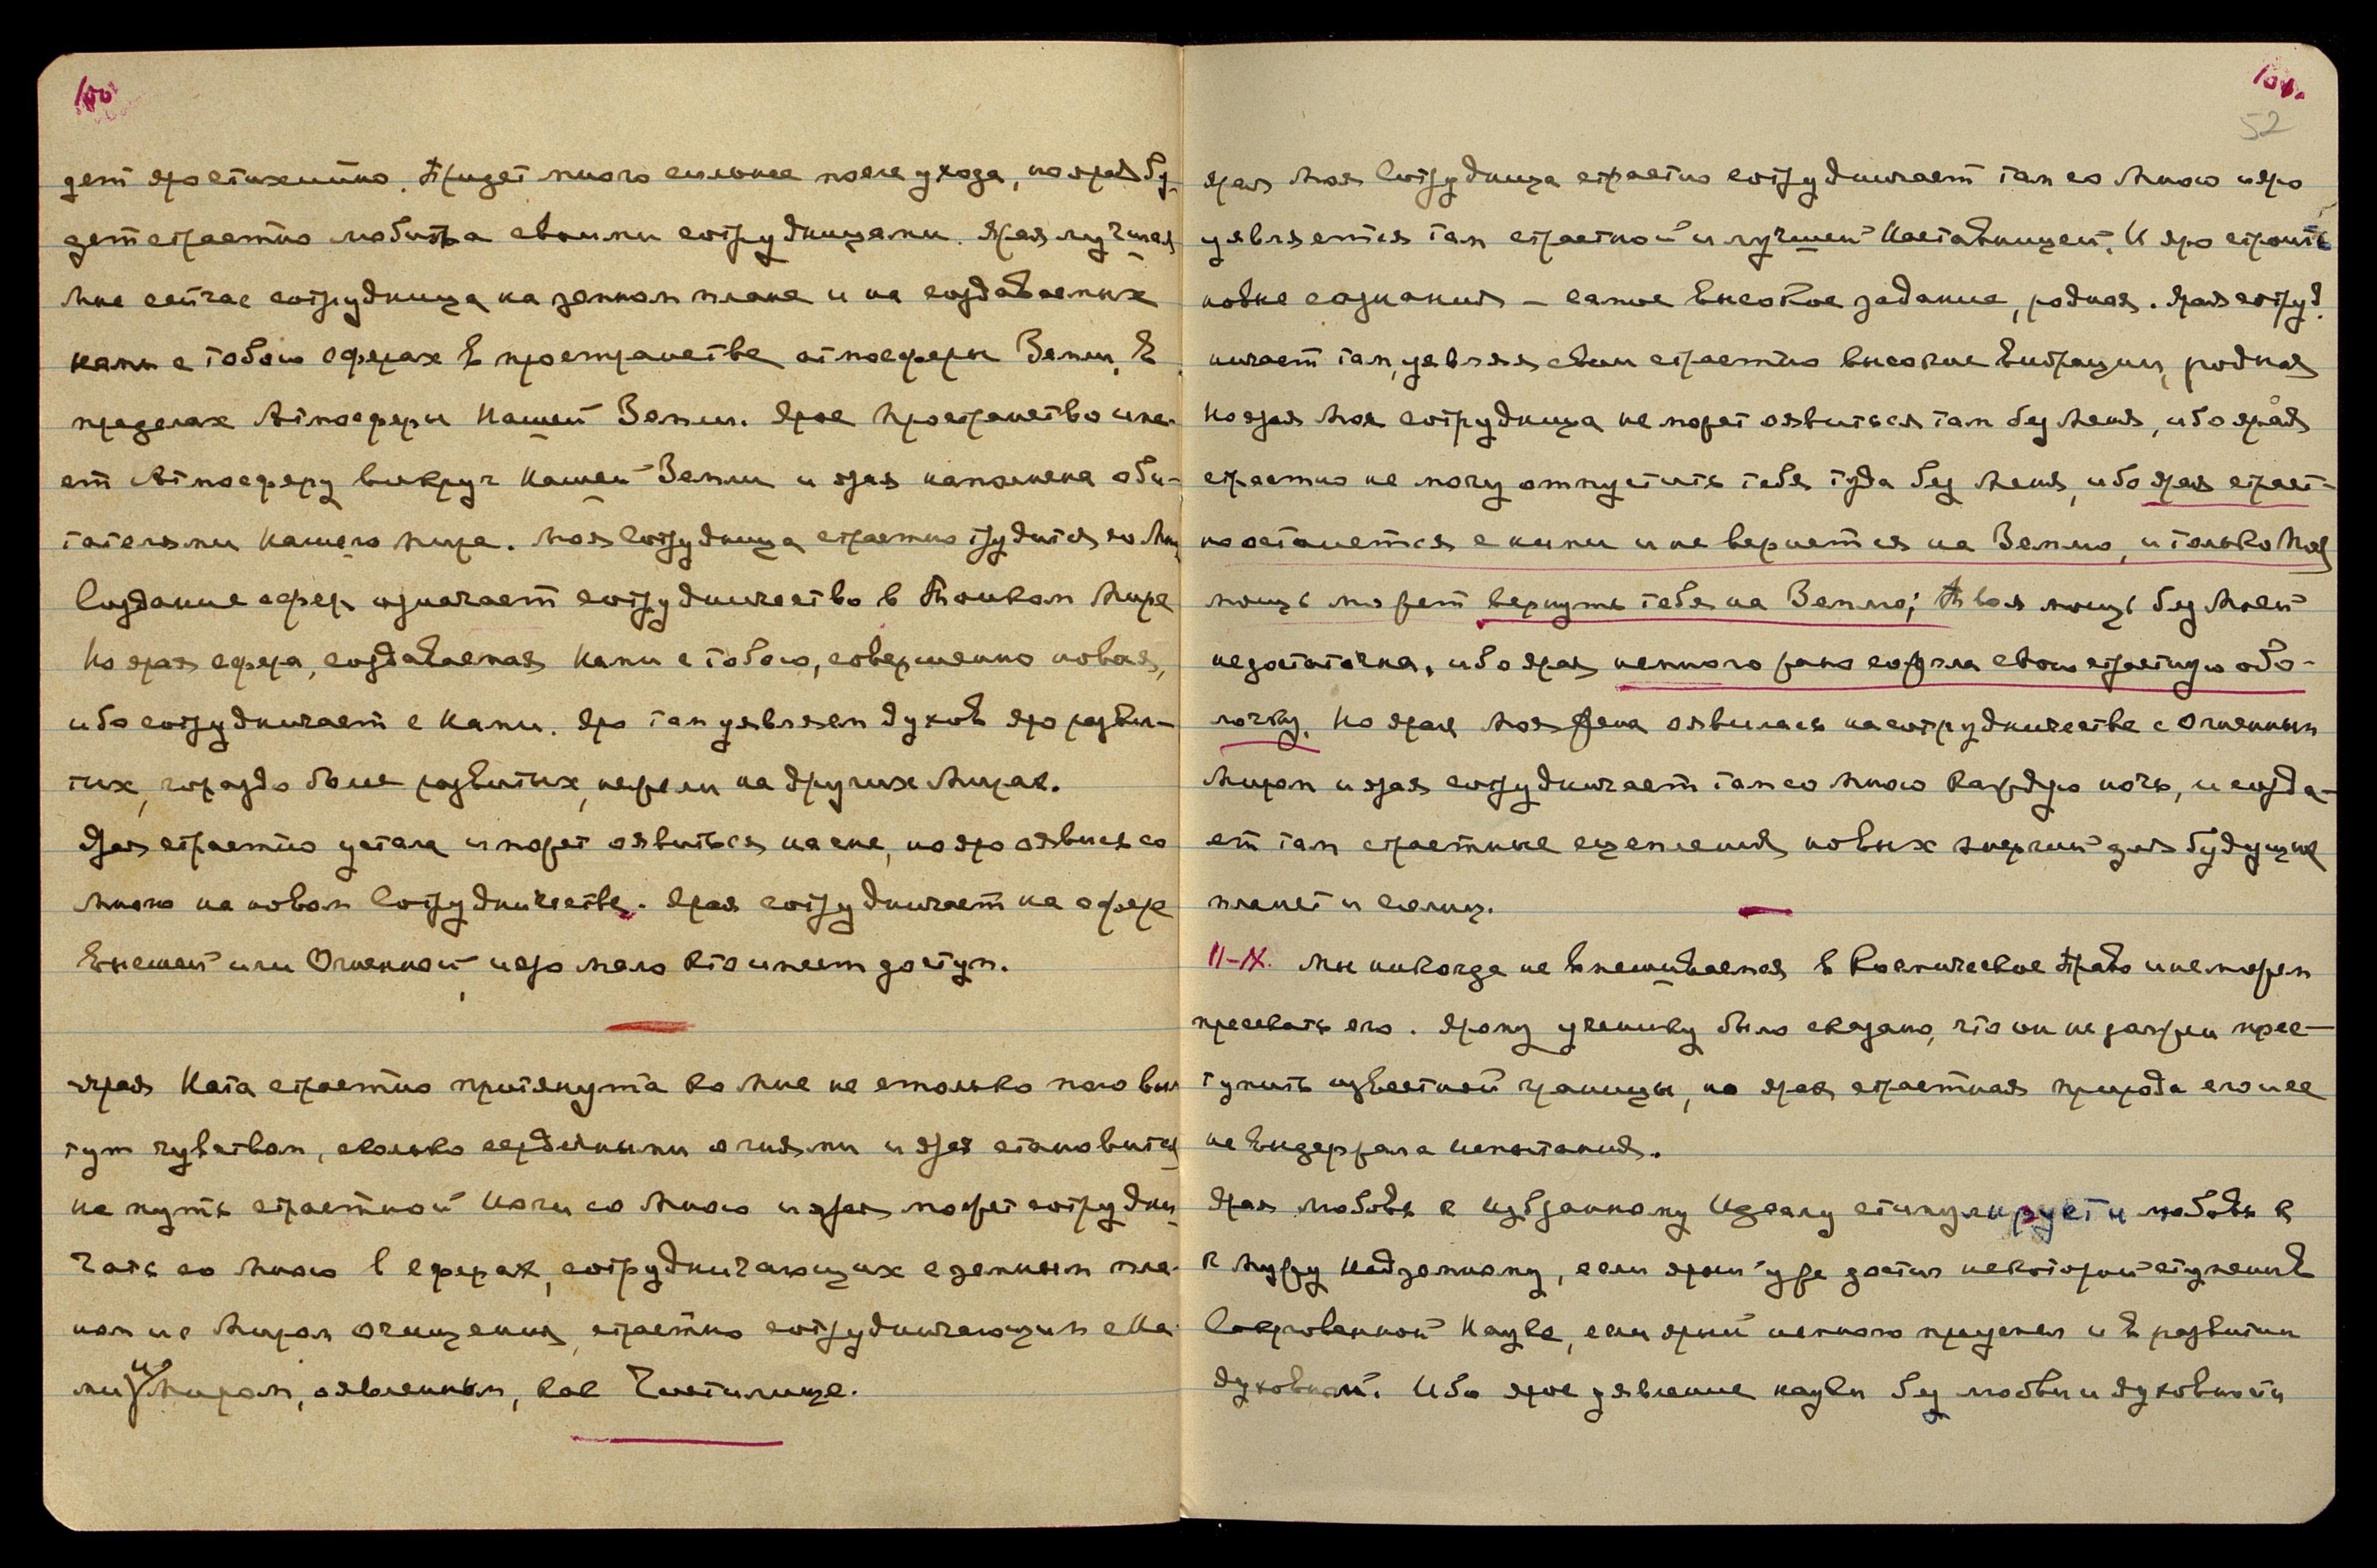 100
дет яростихийно. Придет много сильнее после ухода, но ярая бу-
дет страстно любима своими сотрудницами. Ярая лучшая
Мне сейчас сотрудница на земном плане и на создаваемых
нами с тобою сферах в пространстве атмосферы Земли, в
пределах Атмосферы Нашей Земли. Ярое пространство име-
ет Атмосферу вокруг Нашей Земли и ярая наполнена оби-
тателями Нашего мира. Моя Сотрудница страстно трудится со Мн
Создание сфер означает сотрудничество в Тонком Мире
Но ярая сфера, создаваемая Нами с тобою, совершенно новая,
ибо сотрудничает с Нами. Яро там уявляем духов яро разви-
тых, гораздо более развитых, нежели на других Мирах.
Ярая страстно устала и может оявиться на сне, но яро оявися со
Мною на новом Сотрудничестве. Ярая сотрудничает на сфере
Высшей или Огненной, и яро мало кто имеет доступ.
Ярая Ната страстно притянута ко Мне не столько половым
тут чувством, сколько сердечными огнями и ярая становится
на путь страстной Йоги со Мною и ярая может сотрудни-
чать со Мною в сферах, сотрудничающих с земным пла-
ном и с Миром очищения, страстно сотрудничающим с На-
ми и Миром, оявленным, как Чистилище.
101.
52
ярая Моя Сотрудница страстно сотрудничает там со Мною и яро
уявляется там страстной и лучшей Наставницей. И яро строить
новые сознания – самое высокое задание, родная. Ярая сотруд-
ничает там, уявляя свои страстно высокие вибрации, родная
Но ярая Моя сотрудница не может оявиться там без Меня, ибо ярая
страстно не могу отпустить тебя туда без Меня, ибо ярая страст-
но останется с ними и не вернется на Землю, и только Моя
мощь может вернуть тебя на Землю; Твоя мощь без Моей
недостаточна, ибо ярая немного рано сожгла свою страстную обо-
лочку. Но ярая Моя Жена оявилась на сотрудничестве с Огненным
Миром и ярая сотрудничает там со Мною каждую ночь, и созда-
ет там страстные сцепления новых энергий для будущих
планет и солнц.
11–IX. Мы никогда не вмешиваемся в Космическое Право и не можем
пресекать его. Ярому ученику было сказано, что он не должен прес-
тупить известной границы, но ярая страстная природа его не
не выдержала испытания.
Ярая любовь к Избранному Идеалу стимулирует и любовь к
к Миру Надземному, если ярый уже достиг некоторой ступени в
Сокровенной Науке, если ярый немного преуспел и в развитии
духовном. Ибо ярое уявление науки без любви и духовности